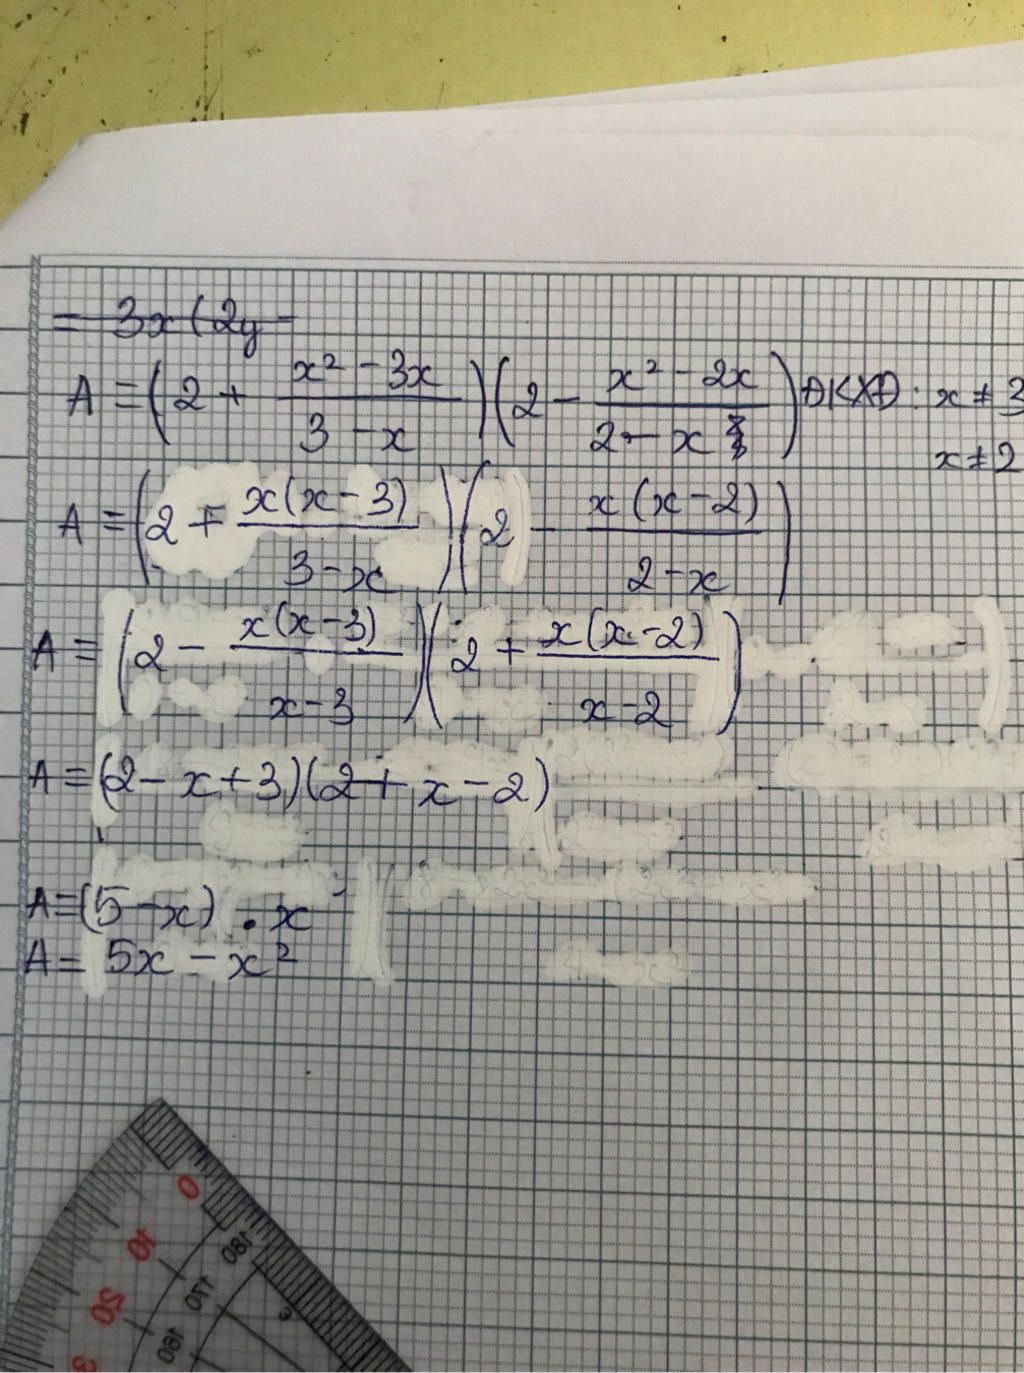 = 3x (2y -
A = (2 + \frac{x² - 3x}{3 - x})(2 - \frac{x² - 2x}{2 - x}) ĐKXĐ: x ≠ 3
x ≠ 2
A = (2 + \frac{x(x - 3)}{3 - x})(2 - \frac{x(x - 2)}{2 - x})
A = (2 - \frac{x(x - 3)}{x - 3})(2 + \frac{x(x - 2)}{x - 2})
A = (2 - x + 3)(2 + x - 2)
A = (5 - x) . x
A = 5x - x²
0
10
20
3
180
170
160